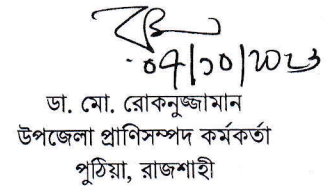 ০৭/১০/২০২৩
ডা. মো. রোকনুজ্জামান
উপজেলা প্রাণিসম্পদ কর্মকর্তা
পুঠিয়া, রাজশাহী